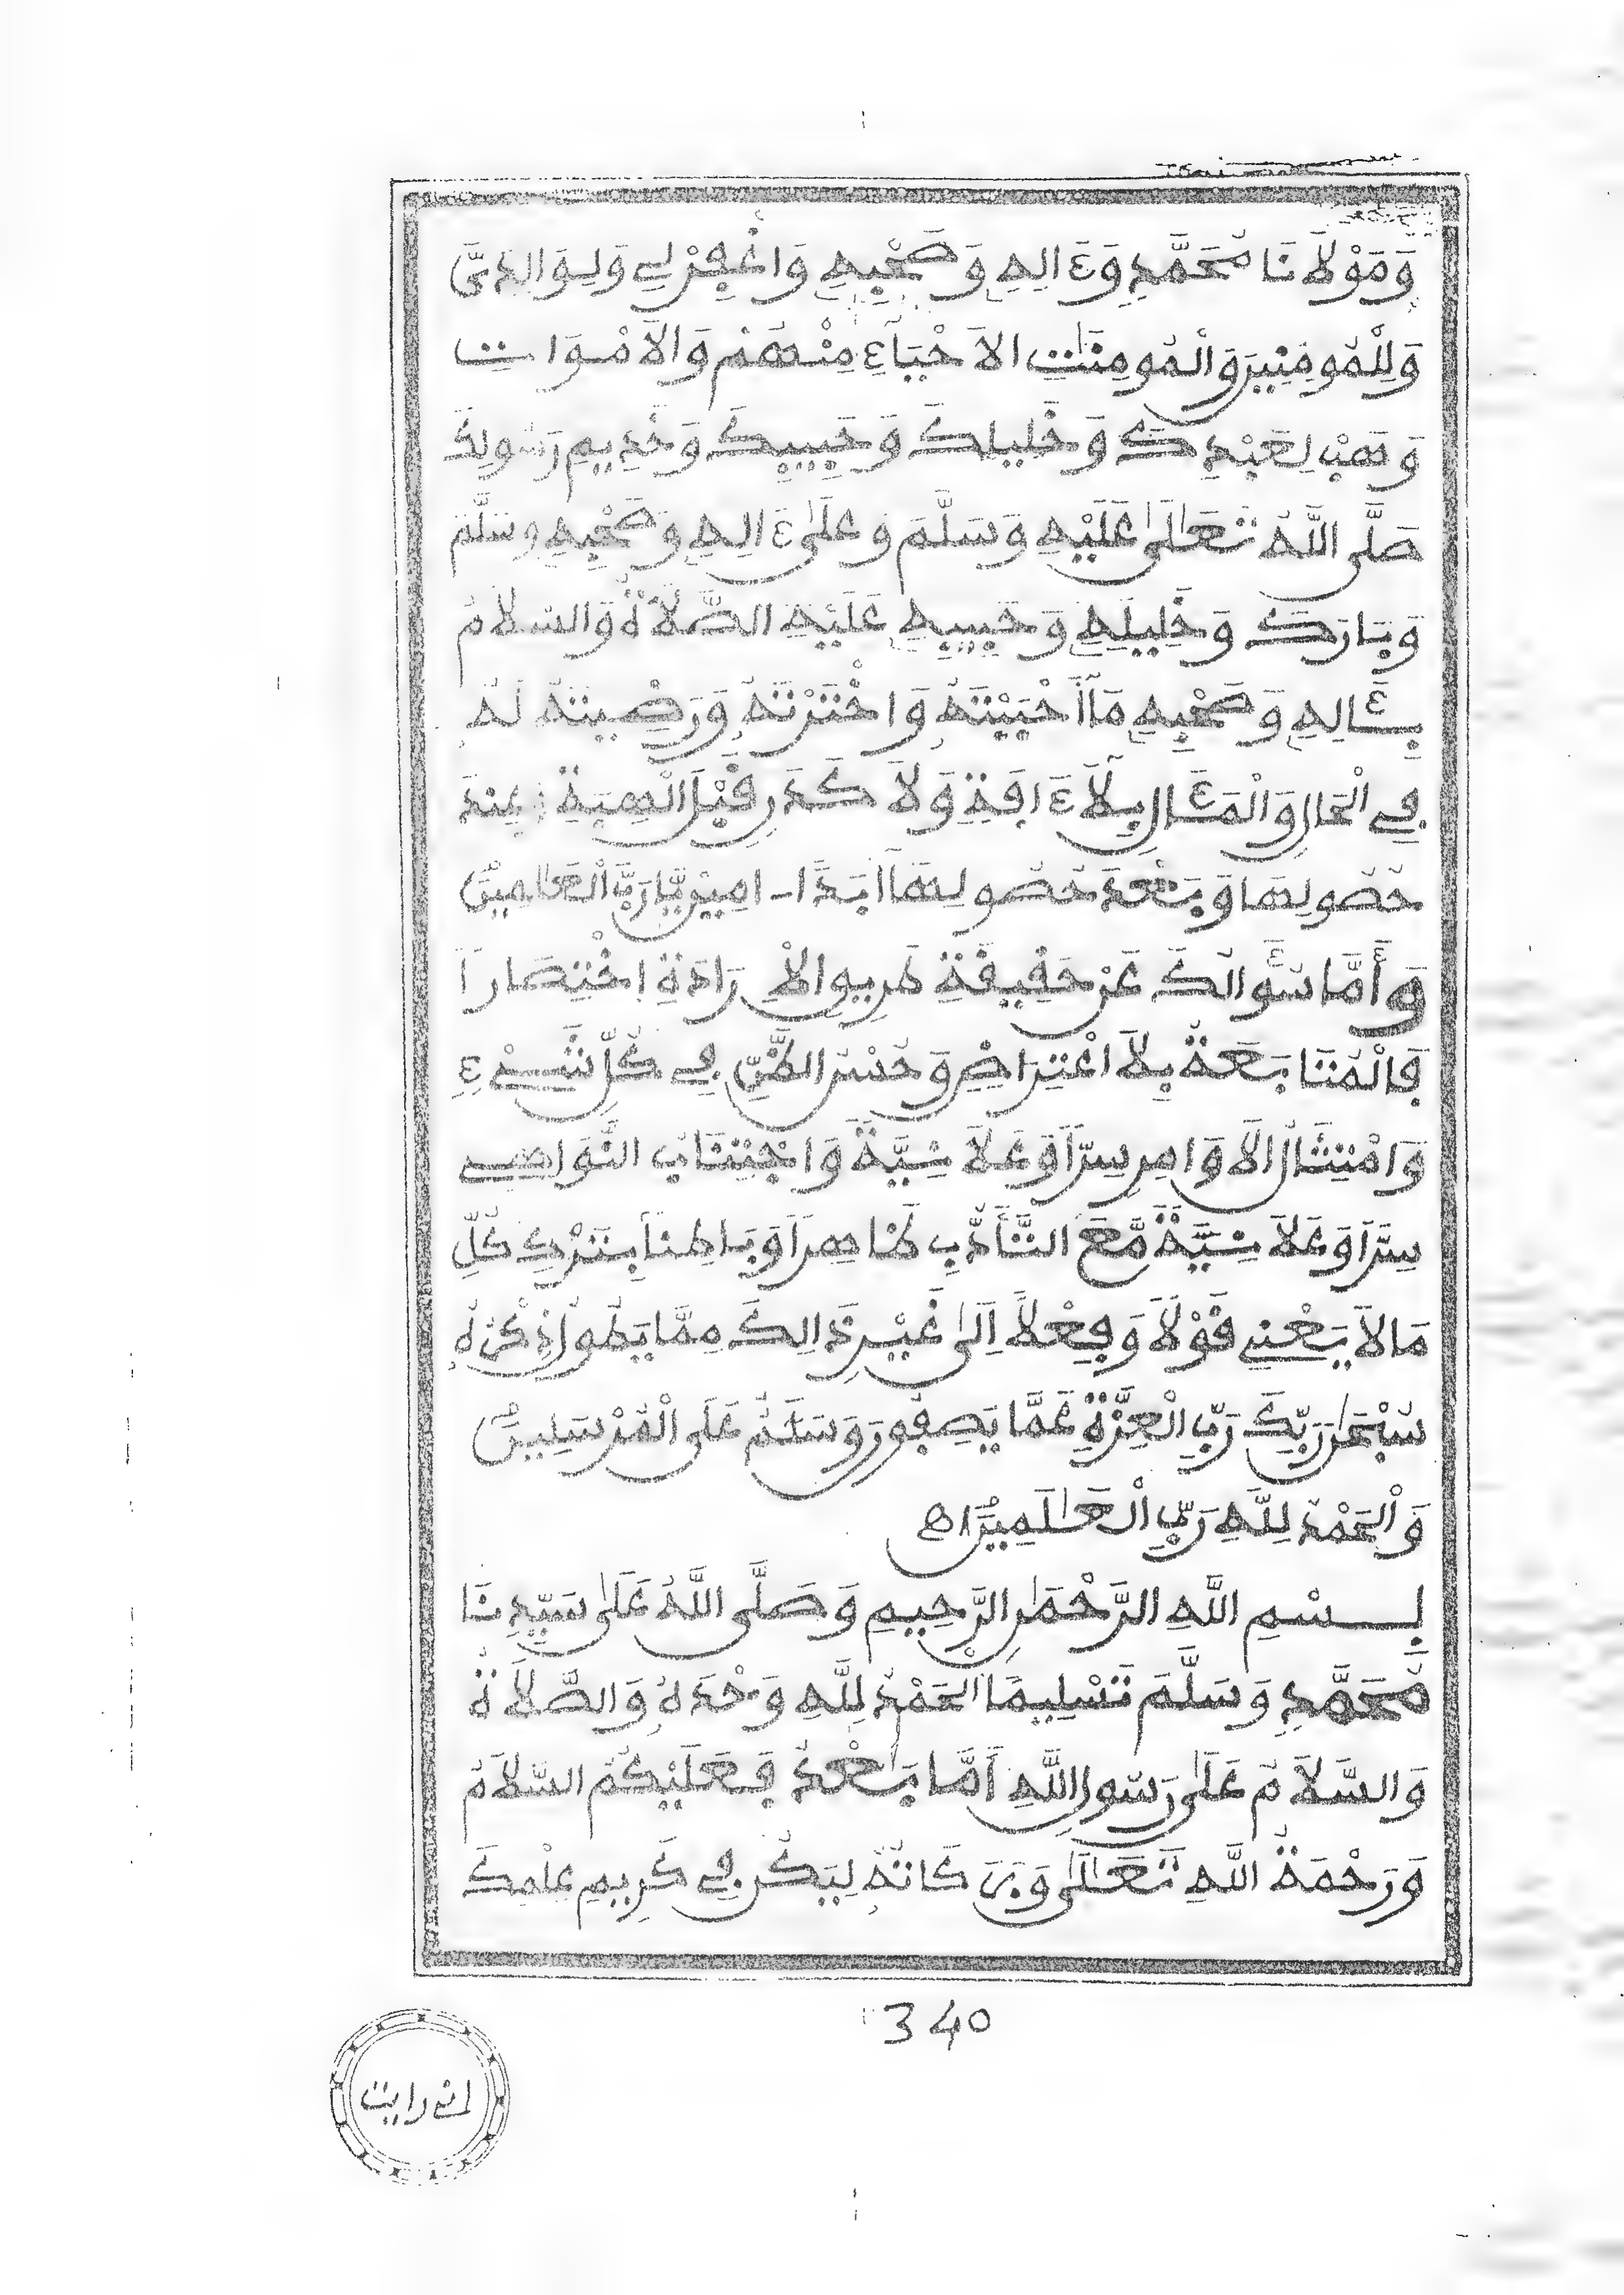 وَمَوْلاَنَا مُحَمَّدٍ وَءَالِهِ وَصَحْبِهِ وَاغْفِرْ لِي وَلِوَالِدَيَّ
وَلِلْمُومِنِينَ وَالْمُومِنَٰتِ الاَحْيَآءِ مِنْهُمْ وَالاَمْوَاتِ
وَهَبْ لِعَبْدِكَ وَخَلِيلِكَ وَحَبِيبِكَ وَخَدِيمِ رَسُولِكَ
صَلَّى اللَّهُ تَعَالَىٰ عَلَيْهِ وَسَلَّمَ وَعَلَىٰ ءَالِهِ وَصَحْبِهِ وَسَلَّمَ
وَبَارَكَ وَخَلِيلِهِ وَحَبِيبِهِ عَلَيْهِ الصَّلاَةُ وَالسَّلاَمُ
بِئَالِهِ وَصَحْبِهِ مَآ أَحْبَبْتَهُ وَاخْتَرْتَهُ وَرَضِيتَهُ لَهُ
فِي الْحَالِ وَالْمَئَالِ بِلاَ ءَافَةٍ وَلاَ كَدَرٍ قَبْلَ الْهِبَةِ عِنْدَ
حُصُولِهَا وَبَعْدَ حُصُولِهَا أَبَدًا ـ امِينَ يَا رَبَّ الْعَالَمِينَ
وَأَمَّا سُؤَالُكَ عَنْ حَقِيقَةِ طَرِيقِ الاِرَادَةِ اخْتِصَارًا
فَالْمُتَابَعَةُ بِلاَ اعْتِرَاضٍ وَحُسْنُ الظَّنِّ فِي كُلِّ شَيْءٍ
وَامْتِثَالُ الاَوَامِرِ سِرًّا وَعَلاَنِيَّةً وَاجْتِنَابُ النَّوَاهِي
سِرًّا وَعَلاَنِيَّةً مَّعَ التَّأَدُّبِ ظَاهِرًا وَبَاطِنًا بِتَرْكِ كُلِّ
مَا لاَ يَعْنِي قَوْلاً وَفِعْلاً إِلَىٰ غَيْرِ ذَالِكَ مِمَّا يَطُولُ ذِكْرُهُ
سُبْحَٰنَ رَبِّكَ رَبِّ الْعِزَّةِ عَمَّا يَصِفُونَ وَسَلَٰمٌ عَلَى الْمُرْسَلِينَ
وَالْحَمْدُ لِلَّهِ رَبِّ الْعَٰلَمِينَ اه
بِسْمِ اللَّهِ الرَّحْمَٰنِ الرَّحِيمِ وَصَلَّى اللَّهُ عَلَىٰ سَيِّدِنَا
مُحَمَّدٍ وَسَلَّمَ تَسْلِيمًا الْحَمْدُ لِلَّهِ وَحْدَهُ وَالصَّلاَةُ
وَالسَّلاَمُ عَلَىٰ رَسُولِ اللَّهِ أَمَّا بَعْدُ فَعَلَيْكُمُ السَّلاَمُ
وَرَحْمَةُ اللَّهِ تَعَالَىٰ وَبَرَكَاتُهُ لِيَكُنْ فِي كَرِيمِ عِلْمِكَ
340